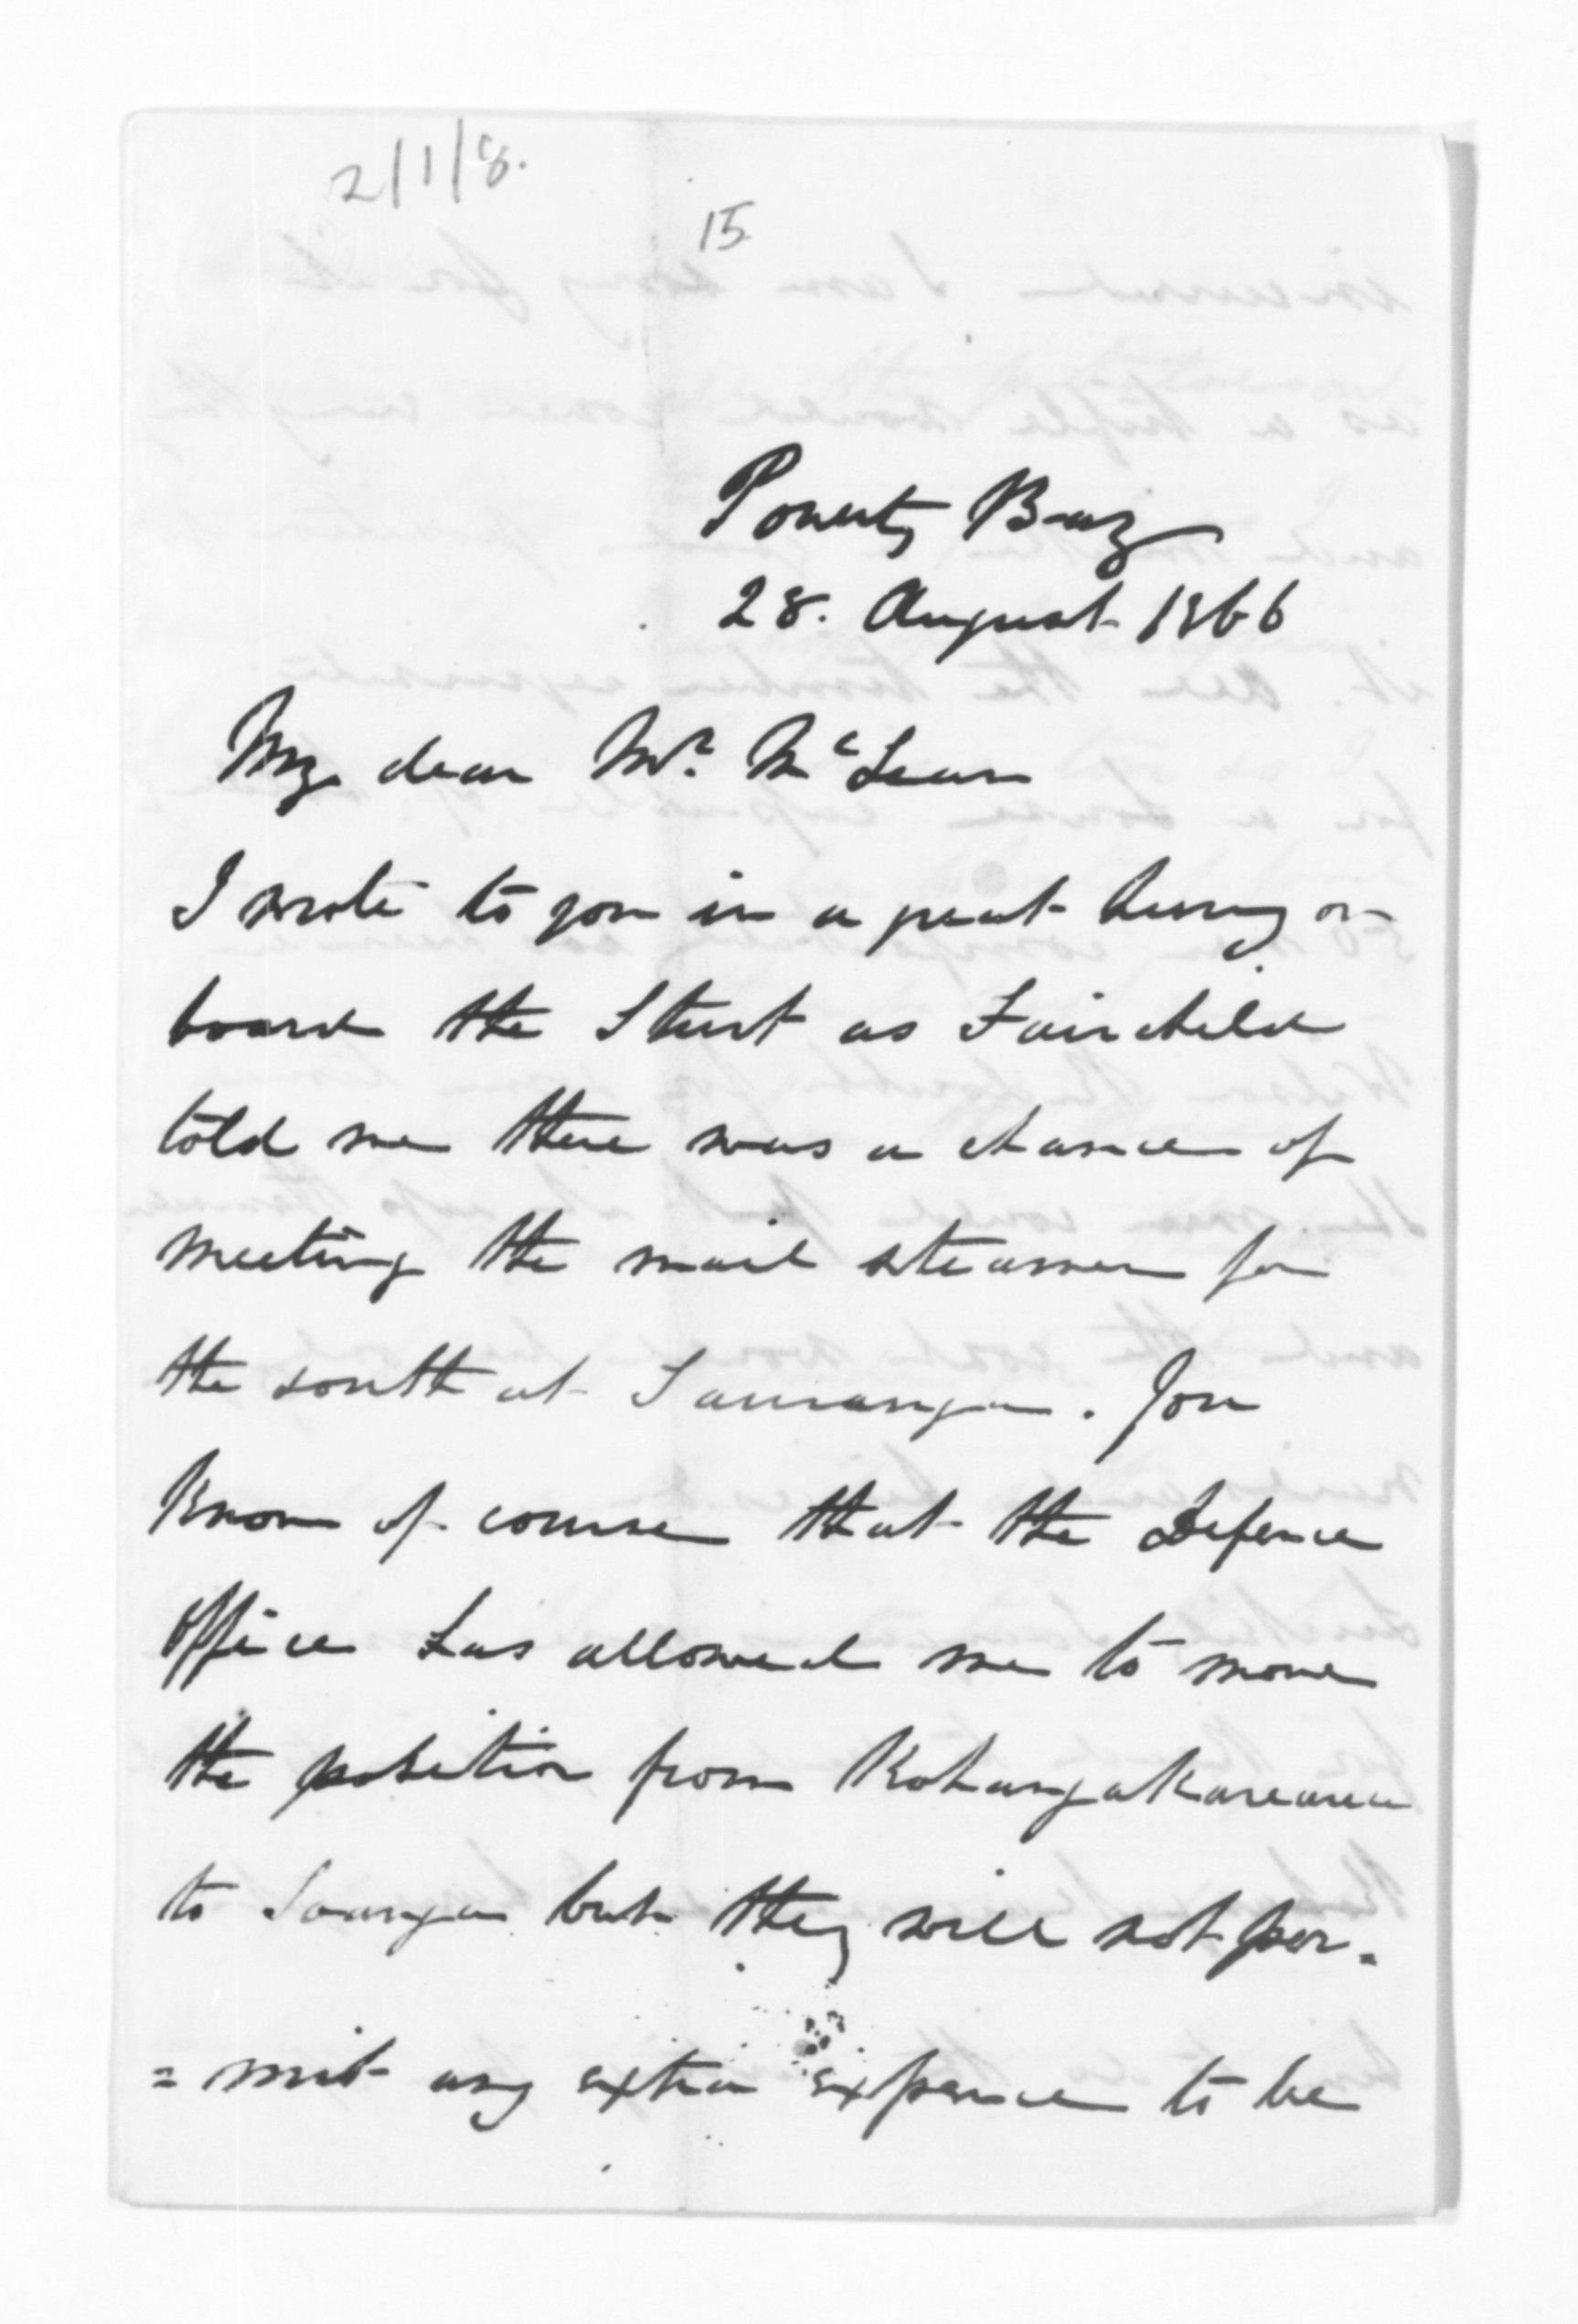 2/1/8.
15
Poverty Bay
28. August 1866
My dear Mr. McLean
I wrote to you in a great hurry on
board the Sturt as Fairchild
told me there was a chance of
meeting the mail steamer for
the south at Tauranga. You
know of course that the Defence
Office has allowed me to move
the position from Kohangakarearea
to Taunga but they will not per=
=mit any extra expence to be